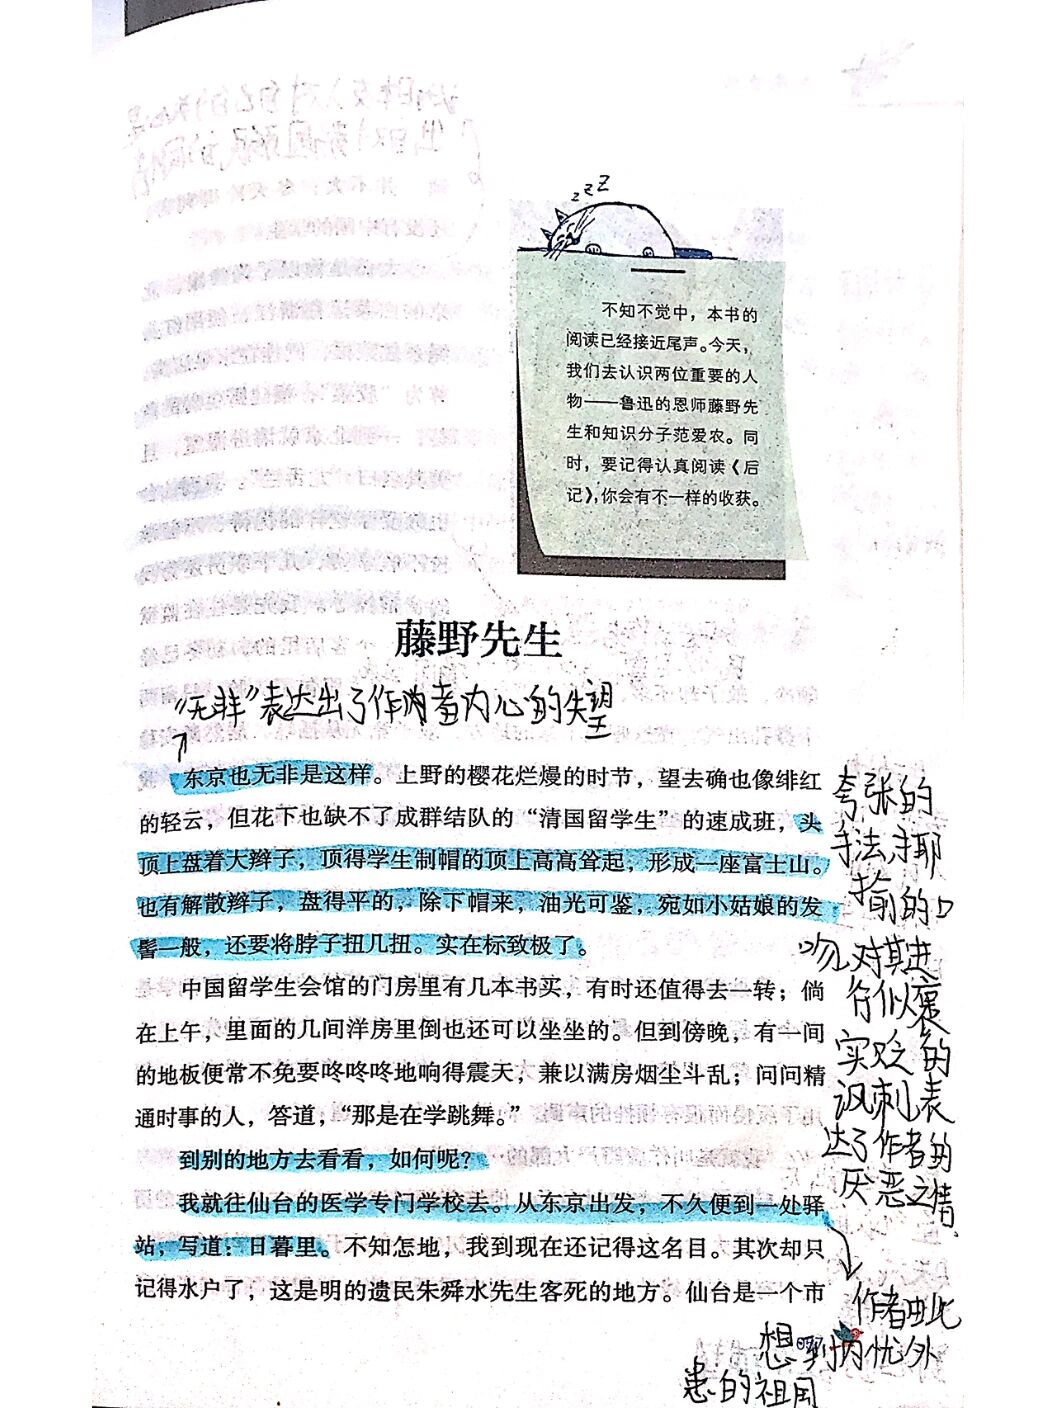 z z Z
不知不觉中，本书的
阅读已经接近尾声。今天，
我们去认识两位重要的人
物——鲁迅的恩师藤野先
生和知识分子范爱农。同
时，要记得认真阅读《后
记》，你会有不一样的收获。
藤野先生
“无非”表达出了作者内心的失望
东京也无非是这样。上野的樱花烂熳的时节，望去确也像绯红
的轻云，但花下也缺不了成群结队的“清国留学生”的速成班，头
顶上盘着大辫子，顶得学生制帽的顶上高高耸起，形成一座富士山。
也有解散辫子，盘得平的，除下帽来，油光可鉴，宛如小姑娘的发
髻一般，还要将脖子扭几扭。实在标致极了。
中国留学生会馆的门房里有几本书买，有时还值得去一转；倘
在上午，里面的几间洋房里倒也还可以坐坐的。但到傍晚，有一间
的地板便常不免要咚咚咚地响得震天，兼以满房烟尘斗乱；问问精
通时事的人，答道；“那是在学跳舞。”
到别的地方去看看，如何呢？
我就往仙台的医学专门学校去。从东京出发，不久便到一处驿
站，写道：日暮里。不知怎地，我到现在还记得这名目。其次却只
记得水户了，这是明的遗民朱舜水先生客死的地方。仙台是一个市
夸张的
手法,揶
揄的口
吻,对其进
行似褒
实贬的
讽刺,表
达了作者的
厌恶之情.
作者由此
想到内忧外
患的祖国